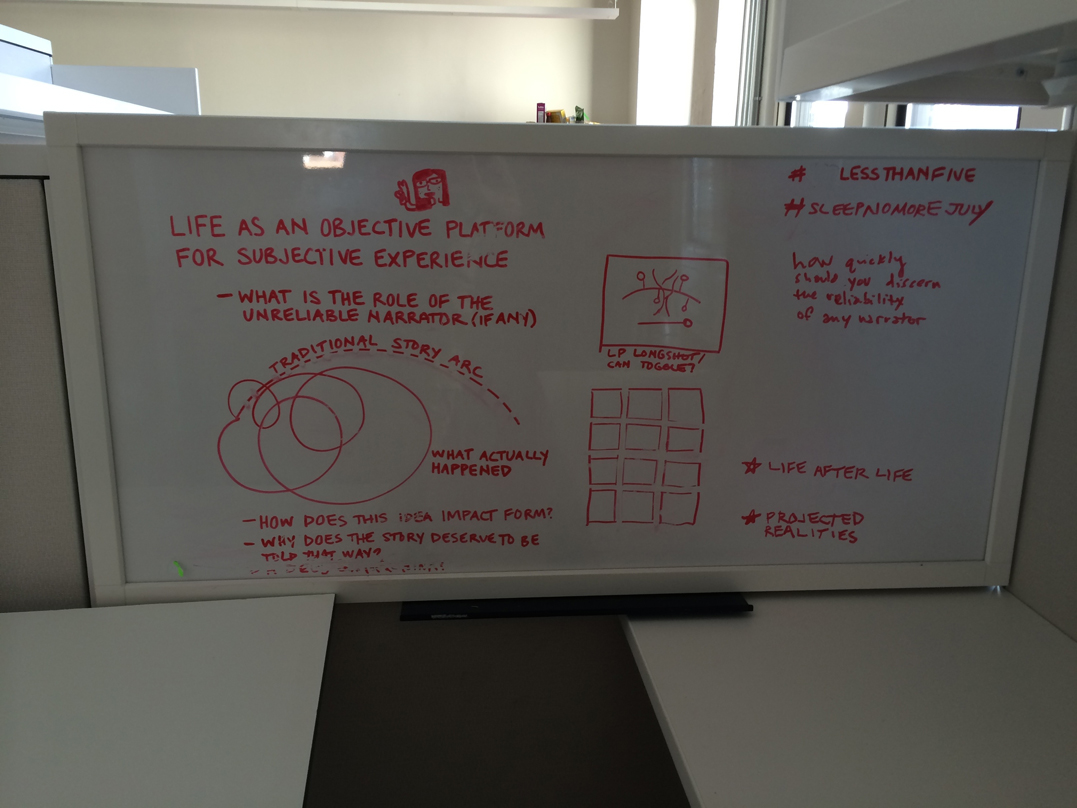 LIFE AS AN OBJECTIVE PLATFORM
FOR SUBJECTIVE EXPERIENCE
- WHAT IS THE ROLE OF THE
UNRELIABLE NARRATOR (IF ANY)
TRADITIONAL STORY ARC
WHAT ACTUALLY
HAPPENED
- HOW DOES THIS IDEA IMPACT FORM?
- WHY DOES THE STORY DESERVE TO BE
TOLD THAT WAY?
LP LONGSHOT/
CAN TOGGLE?
# LESSTHANFIVE
#SLEEPNOMORE JULY
how quickly
should you discern
the reliability
of any narrator
* LIFE AFTER LIFE
* PROJECTED
REALITIES